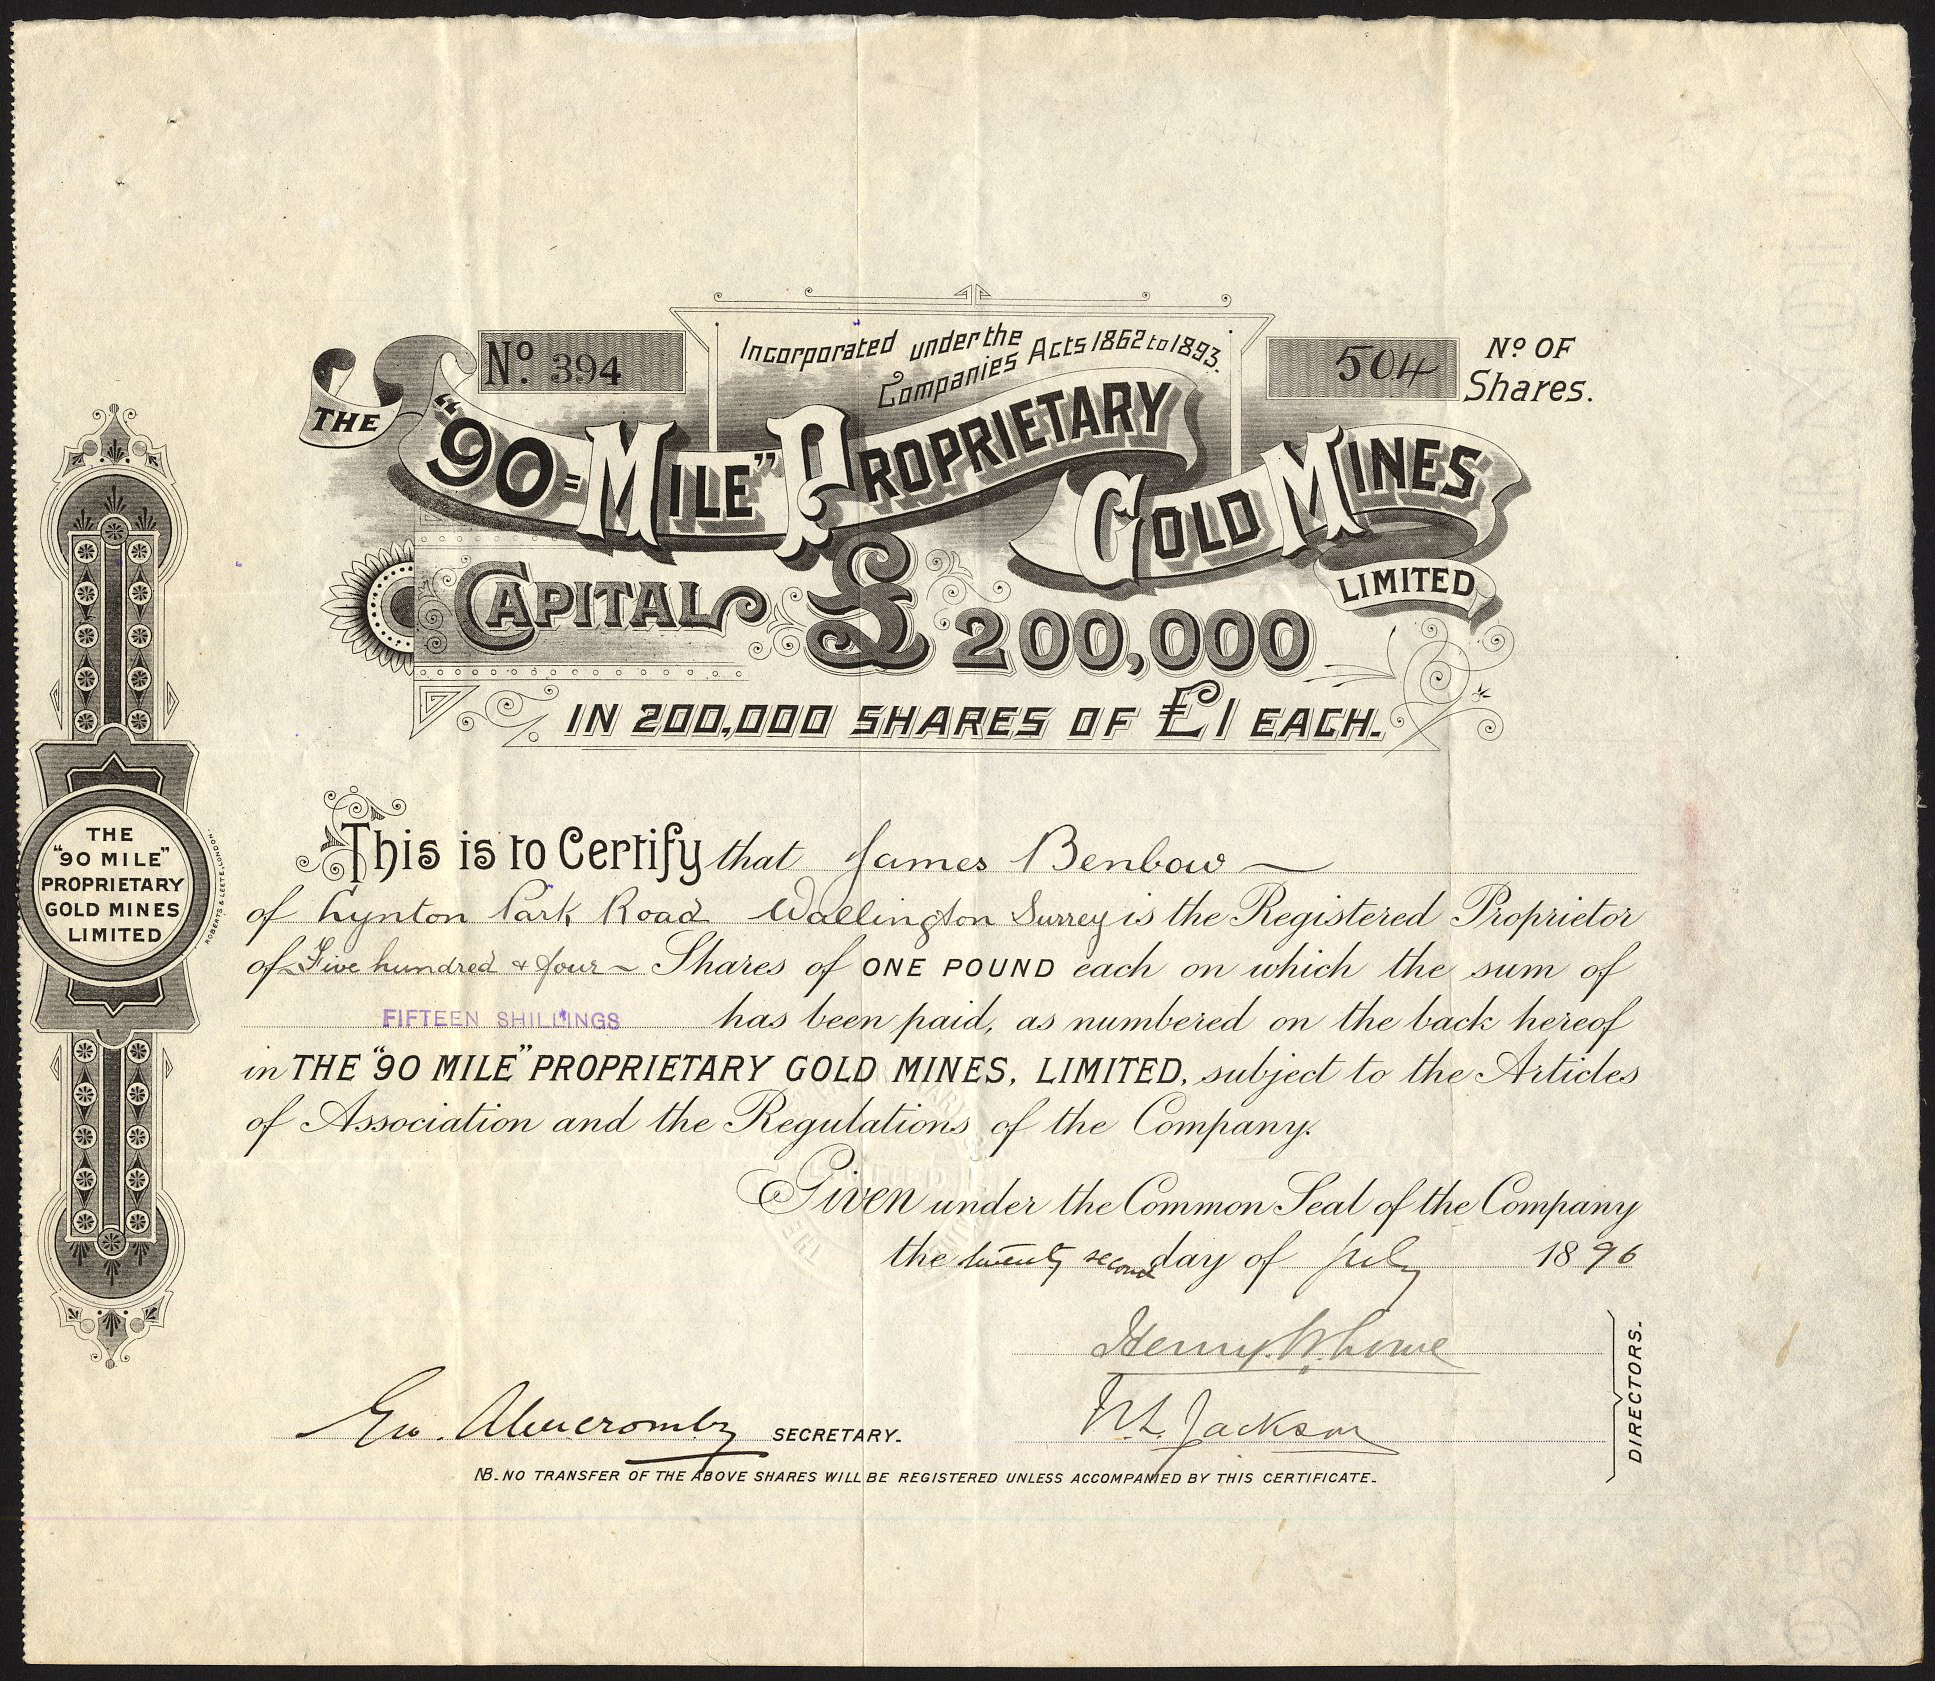 No. 394
Incorporated under the
Companies Acts 1862 to 1893.
504
No. OF
Shares.
THE
"90=MILE" PROPRIETARY
GOLD MINES
LIMITED
CAPITAL £200,000
IN 200,000 SHARES OF £1 EACH.
THE
"90 MILE"
PROPRIETARY
GOLD MINES
LIMITED
ROBERTS & LEETE, LONDON.
This is to Certify that James Benbow
of Lynton Park Road Wallington Surrey is the Registered Proprietor
of Five hundred & four Shares of ONE POUND each on which the sum of
FIFTEEN SHILLINGS has been paid, as numbered on the back hereof
in THE "90 MILE" PROPRIETARY GOLD MINES, LIMITED, subject to the Articles
of Association and the Regulations of the Company.
Given under the Common Seal of the Company
the twenty second day of July 1896
Henry W. Lowe
N. L. Jackson
DIRECTORS.
Geo. Abercromby SECRETARY.
NB. NO TRANSFER OF THE ABOVE SHARES WILL BE REGISTERED UNLESS ACCOMPANIED BY THIS CERTIFICATE.